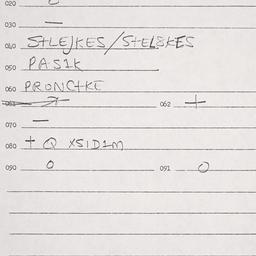 020 0
030 —
040 STLEJKES/STELSKES
050 PASIK
060 PRONCTKE
061 062 +
070 —
080 + Q XSIDIM
090 0 091 0